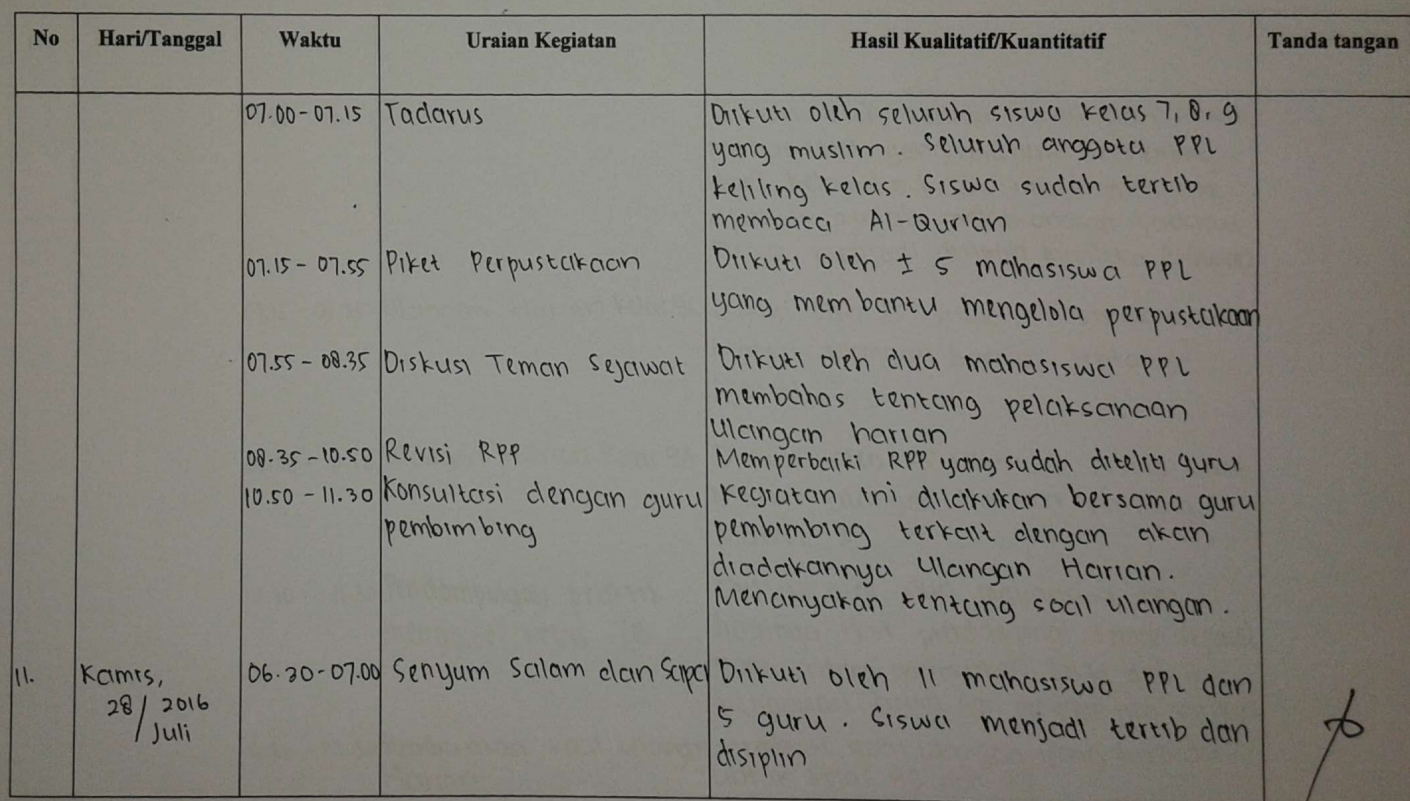 No Hari/Tanggal Waktu Uraian Kegiatan Hasil Kualitatif/Kuantitatif Tanda tangan
07.00-07.15 Tadarus Diikuti oleh seluruh siswa kelas 7, 8, 9
yang muslim. Seluruh anggota PPL
keliling kelas. Siswa sudah tertib
membaca Al-Qur'an
07.15 - 07.55 Piket Perpustakaan Diikuti oleh ± 5 mahasiswa PPL
yang membantu mengelola perpustakaan
07.55 - 08.35 Diskusi Teman Sejawat Diikuti oleh dua mahasiswa PPL
membahas tentang pelaksanaan
ulangan harian
08.35 - 10.50 Revisi RPP Memperbaiki RPP yang sudah diteliti guru
10.50 - 11.30 Konsultasi dengan guru Kegiatan ini dilakukan bersama guru
pembimbing pembimbing terkait dengan akan
diadakannya Ulangan Harian.
Menanyakan tentang soal ulangan.
11. Kamis, 06.30-07.00 Senyum Salam dan Sapa Diikuti oleh 11 mahasiswa PPL dan
28/ 2016 5 guru. Siswa menjadi tertib dan
/Juli disiplin